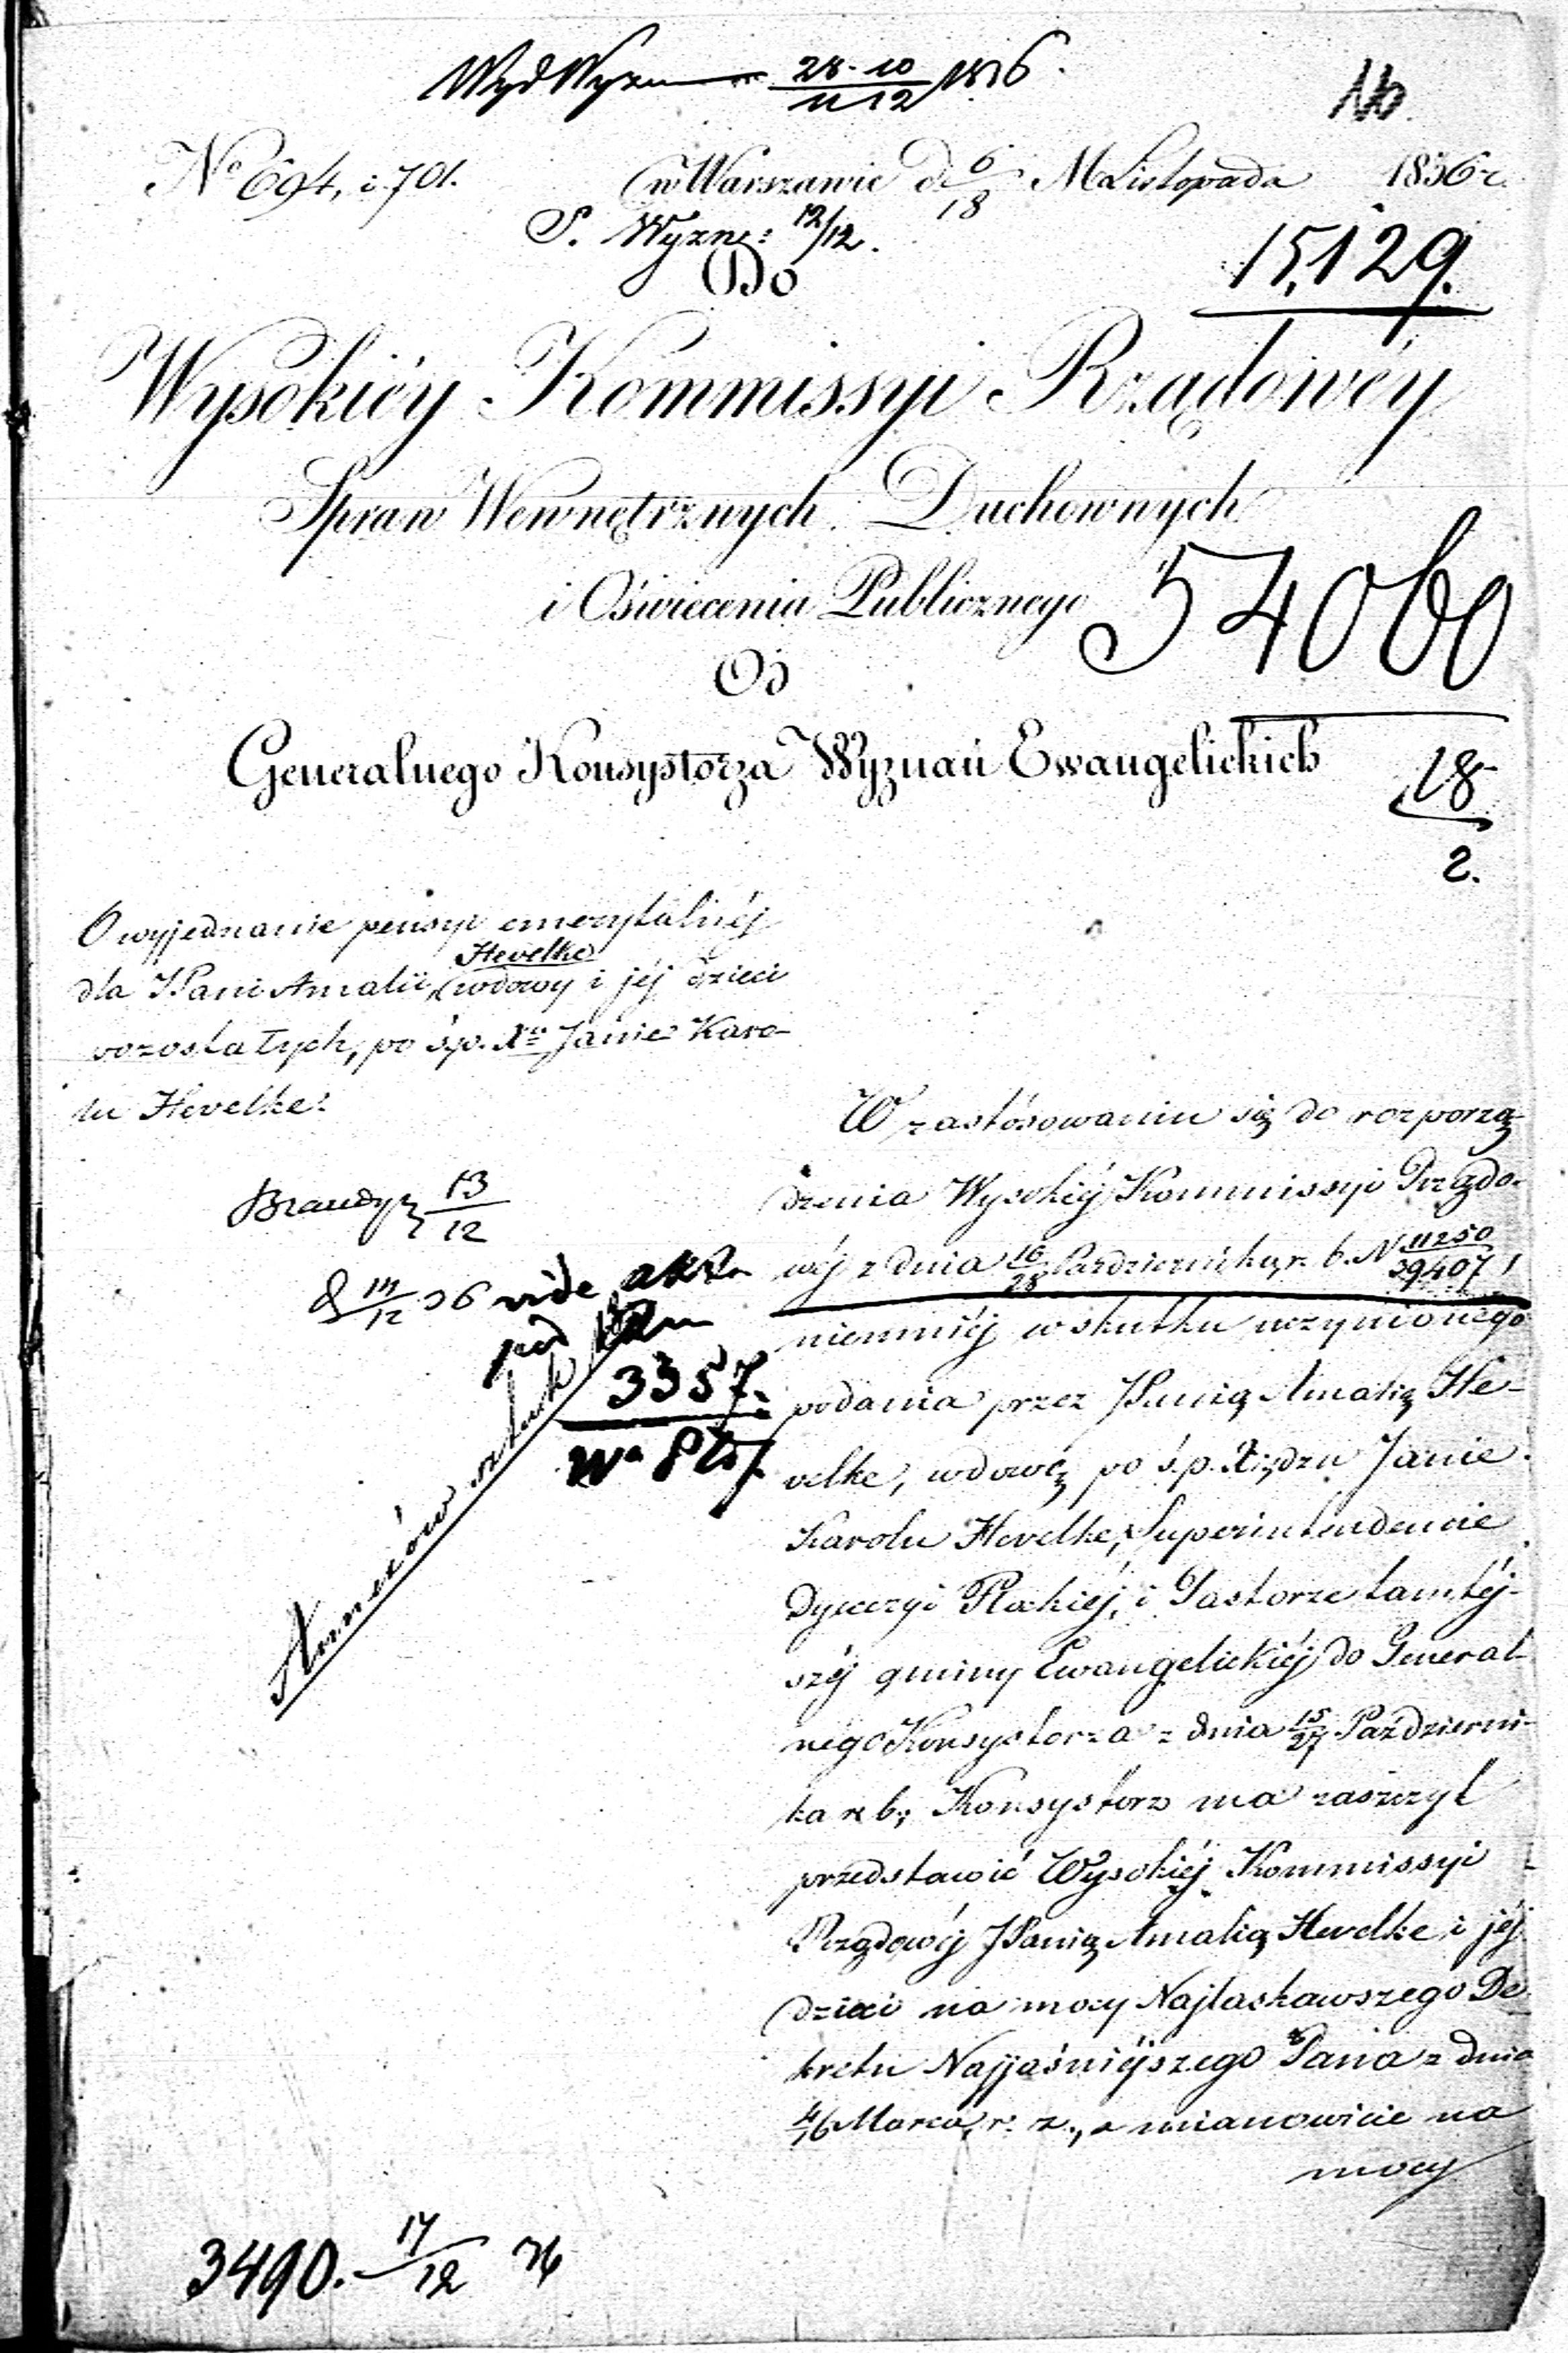 Wyd Wyzn 28-10/11 12 1836.
No 694, i 701.
w Warszawie d. 6/18 M Listopada 1836 r.
P. Wyzn: 12/12.
Do
15,129.
Wysokiéy Kommissyi Rządowéy
Spraw Wewnętrznych Duchownych
i Oświecenia Publicznego
54060
Od
Generalnego Konsystorza Wyznań Ewangelickich
18
2.
O wyjednanie pensyi emerytalnéj
Hevelke
dla JPani Amalii, wdowy i jéj dzieci
pozostałych, po ś.p. Xu Janie Karo-
lu Hevelke.
13/12
14/12 36 vide akta
pod
3357.
Annexów sztuk
W zastósowaniu się do rozporzą-
dzenia Wysokiéj Kommissyi Rządo-
wéj z dnia 16/28 Października r. b. N 11250/39407,
niemniéj w skutku uczynionego
podania przez JPanią Amalią He-
velke, wdowę po ś.p. Xiędzu Janie
Karolu Hevelke, Superintendencie
Dyecezyi Płockiéj, i Pastorze tamtéj-
széj gminy Ewangelickiéj do General-
nego Konsystorza z dnia 15/27 Październi-
ka r. b., Konsystorz ma zaszczyt
przedstawić Wysokiéj Kommissyi
Rządowéj JPanią Amalią Hevelke i jéj
dzieci na mocy Najłaskawszego De-
kretu Najjaśniéjszego Pana z dnia
4/16 Marca r. z., a mianowicie na
mocy
3490. 17/12 36